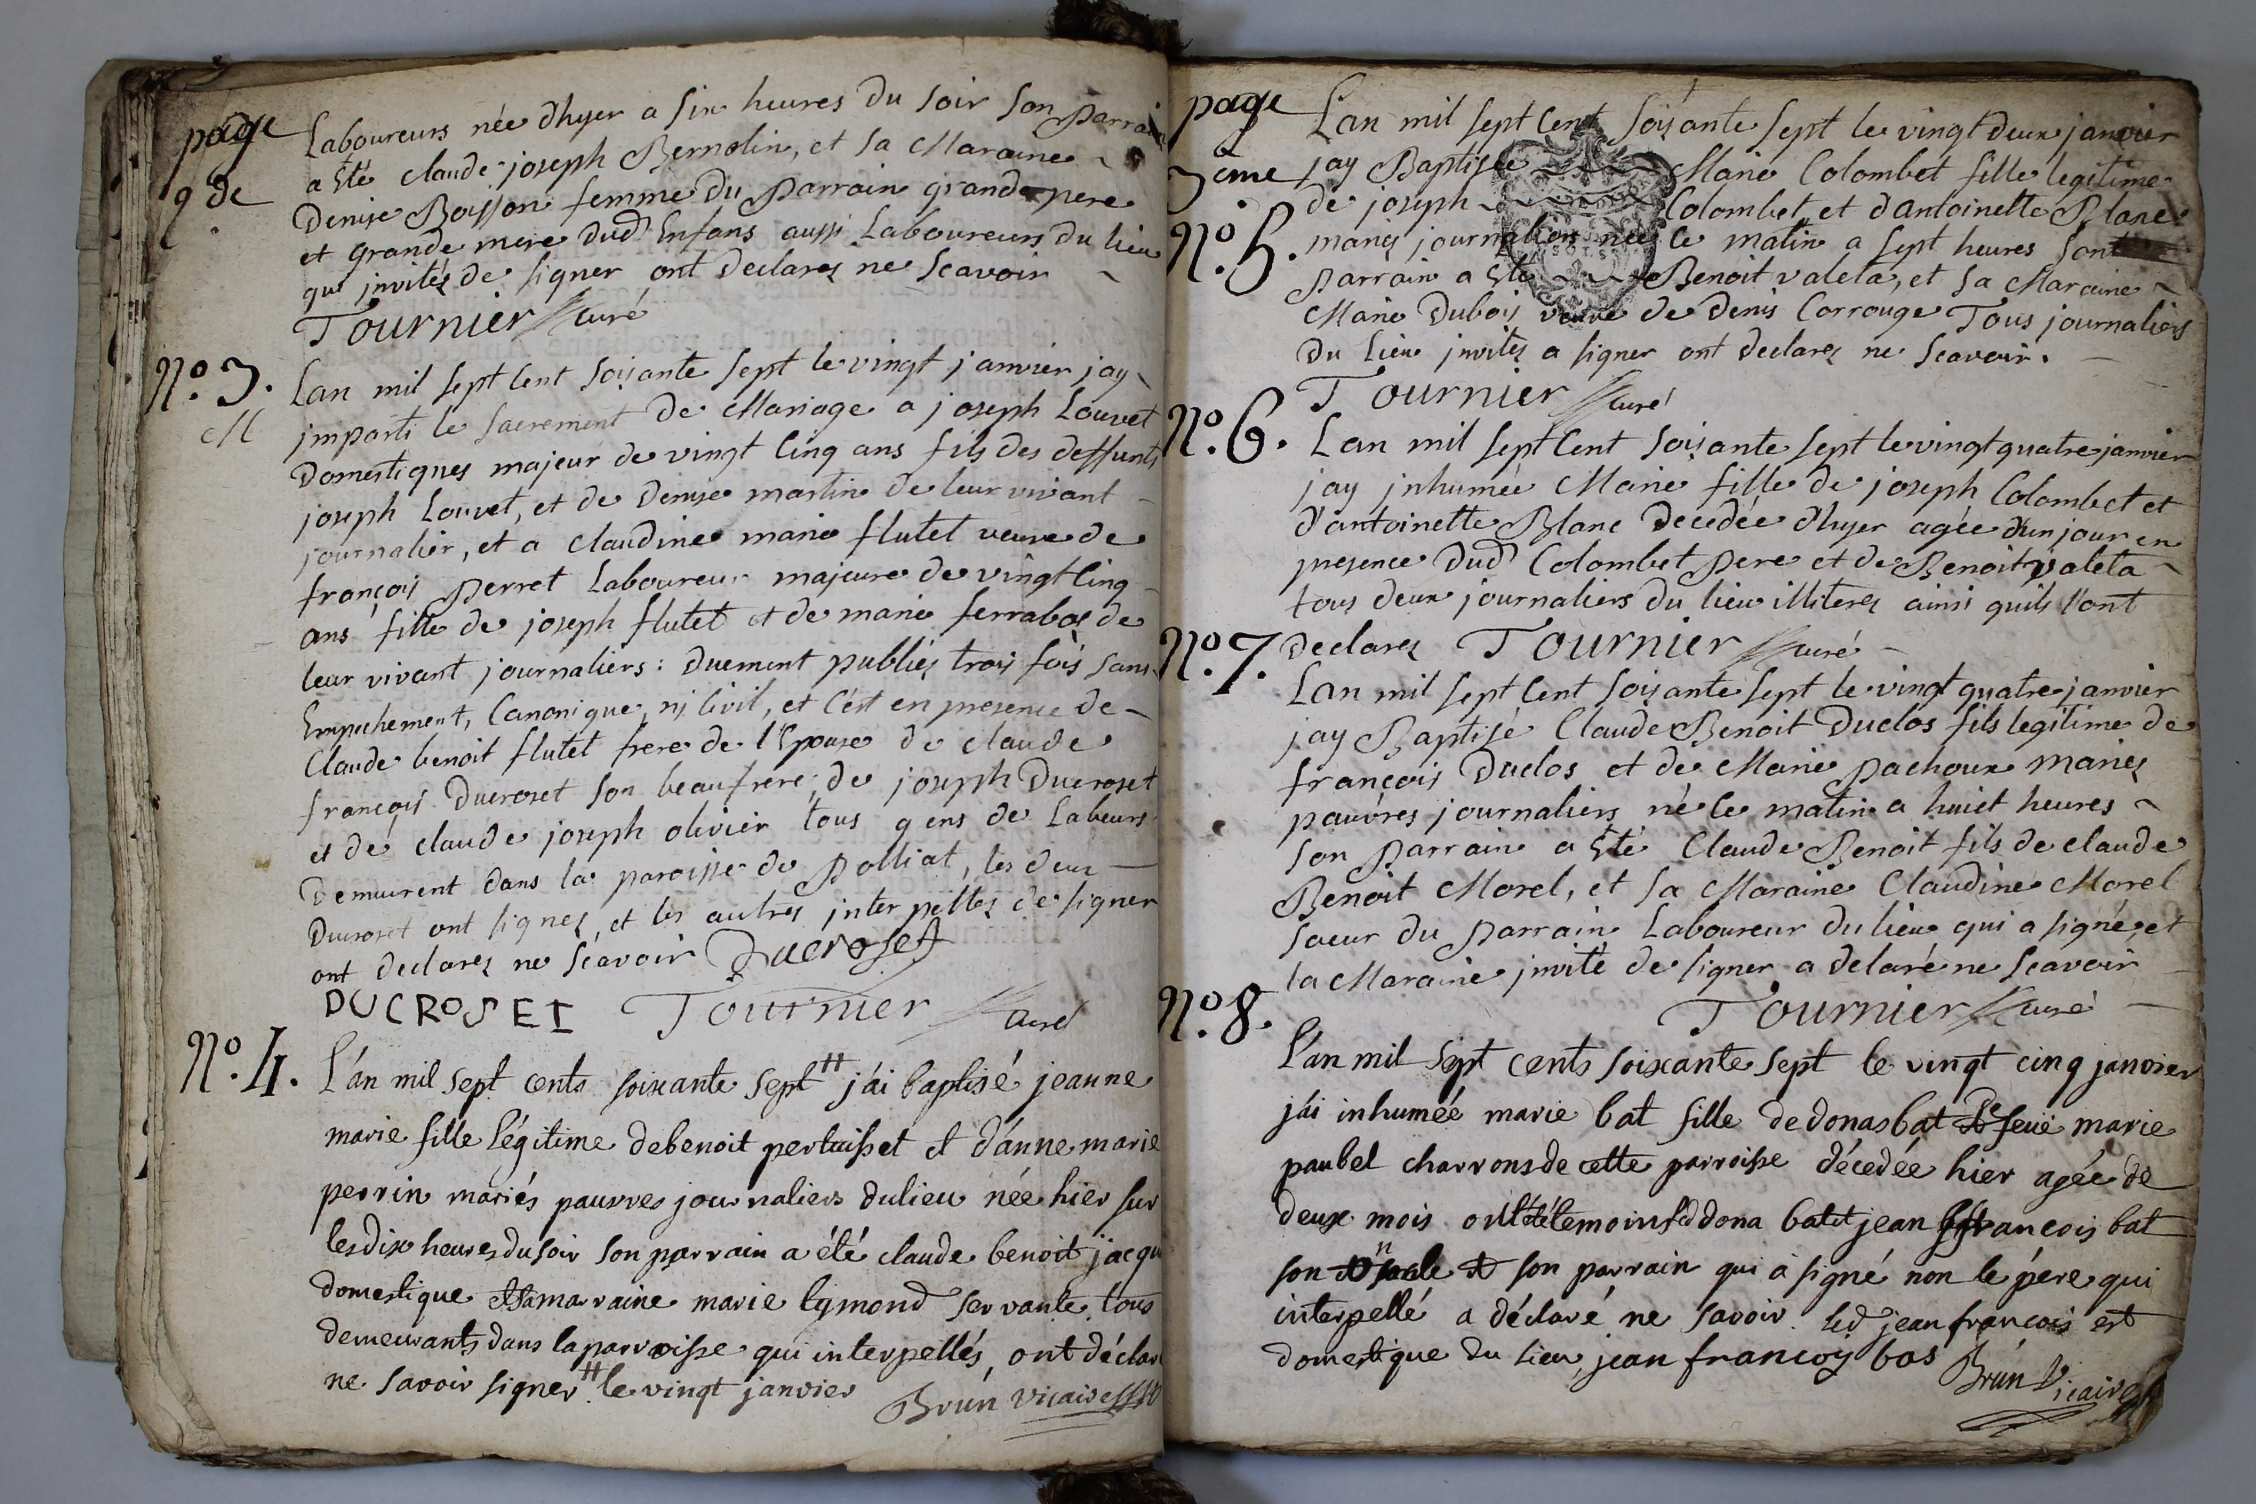 page
2de
Laboureurs née d'hyer a six heures du soir son parrain
a Eté claude joseph Bernolin, et sa Maraine
Denise Boisson femme du parrain grande pere
et grande mere dud Enfans aussi Laboureurs du lieu
qui invités de signer ont declarez ne scavoir
Tournier curé
No. 3.
M
Lan mil sept cent soisante sept le vingt janvier jay
imparti le sacrement de Mariage a joseph Louvet
Domestiques majeur de vingt cinq ans fils des deffunts
joseph Louvet, et de denise martin de leur vivant
journalier, et a claudine marie flutet veuve de
françois perret Laboureur majeure de vingt cinq
ans fille de joseph flutet et de marie ferrabos de
leur vivant journaliers : duement publiés trois fois sans
Empechement, canonique, ni civil, et c'est en presence de
Claude benoit flutet frere de l'Epouse de claude
françois ducroset son beaufrere, de joseph Ducroset
et de claude joseph olivier tous gens de Labeurs
Demeurent dans la paroisse de Polliat, les deux
Ducroset ont signez, et les autres interpellez de signer
ont declarez ne scavoir Ducroset
DUCROSET Tournier curé
No. 4.
L'án mil sept cents soixante sept # j'ai baptisé jeanne
marie fille légitime de benoit pertuisset et d'ánne marie
perrin mariés pauvres journaliers du lieu née hier sur
les dix heures du soir son parrain a été claude benoit jacqu
domestique et sa marraine marie eymond servante tous
demeurants dans la parroisse qui interpellés, ont déclar
ne savoir signer # le vingt janvier Brun vicaire
page
3eme
No. 5.
Lan mil sept cent soisante sept le vingt deux janvier
jay Baptisée Marie Colombet fille legitime
de joseph Colombet et d'antoinette Blanc
mariez journaliers née ce matin a sept heures son
parrain a Eté Benoit valeta, et sa Maraine
Marie Dubois veuve de denis Corrouge Tous journaliers
du lieu invitez a signer ont declarez ne scavoir.
Tournier curé
No. 6.
Lan mil sept cent soisante sept le vingt quatre janvier
jay inhumée Marie fille de joseph Colombet et
d'antoinette Blanc decedée d'hyer agée d'un jour en
presence dud Colombet pere et de Benoit valeta
tous deux journaliers du lieu illiterez ainsi quils l'ont
declarez Tournier curé
No. 7.
Lan mil sept cent soisante sept le vingt quatre janvier
jay Baptisé Claude Benoit Duclos fils legitime de
françois Duclos et de Marie pachoux mariez
pauvres journaliers né ce matin a huict heures
son parrain a Eté Claude Benoit fils de claude
Benoit Morel, et sa Maraine Claudine Morel
soeur du parrain Laboureur du lieu qui a signé, et
la Maraine invité de signer a delaré ne scavoir
Tournier curé
No. 8.
L'an mil sept cents soixante sept le vingt cinq janvier
j'ai inhumée marie bat fille de donas bat de feüe marie
paubel charrons de cette parroisse décedée hier agée de
deux mois ont été temoins led dona bat et jean francois bat
son oncle son parrain qui a signé non le pére qui
interpellé a déclaré ne savoir. led jean francois est
domestique du lieu jean francoy bas
Brun Vicaire